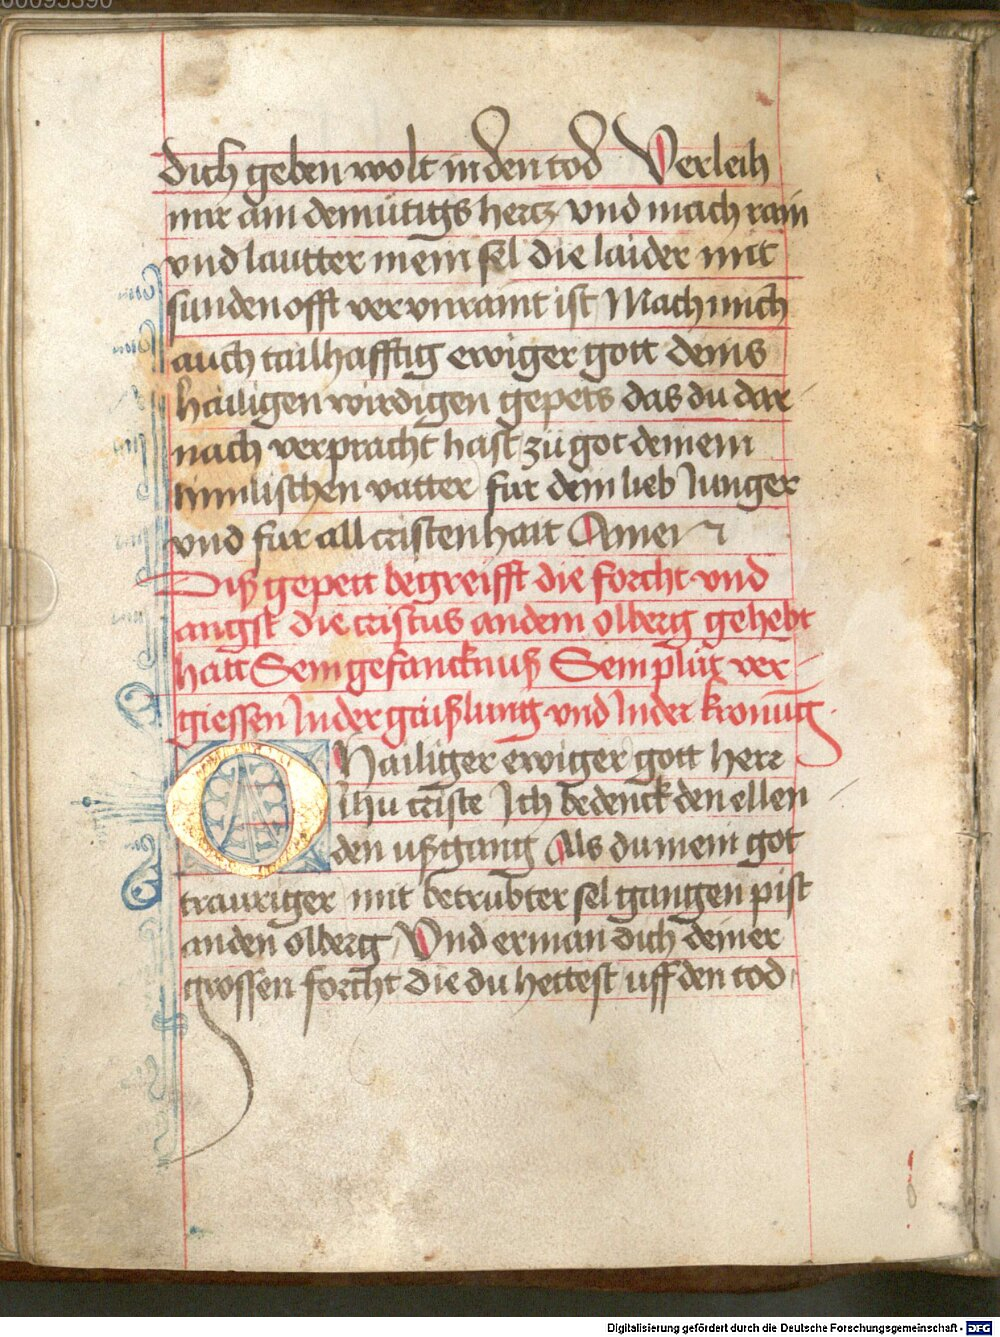 00095390
dich geben wolt in den tod Verleih
mir ain demütigs hertz vnd mach rain
vnd lautter mein sel die laider mit
sunden offt verunraint ist Mach mich
auch tailhafftig ewiger gott deins
hailigen wirdigen gepets das du dar
nach verpracht hast zü got deinem
himlischen vatter für dein lieb Junger
vnd für all cristenhait Amen
Diß gepett begreifft die forcht vnd
angst die cristus an dem olberg gehebt
hatt Sein gefancknuß Sein plüt ver-
giessen In der gaißlung vnd In der kronung
O Hailiger ewiger gott herr
ihu criste Ich bedenck den ellen
den ußgang Als du mein got
trauriger mit betrubter sel gangen pist
an den olberg Vnd erman dich deiner
grossen forcht die du hettest uff den tod
Digitalisierung gefördert durch die Deutsche Forschungsgemeinschaft - DFG